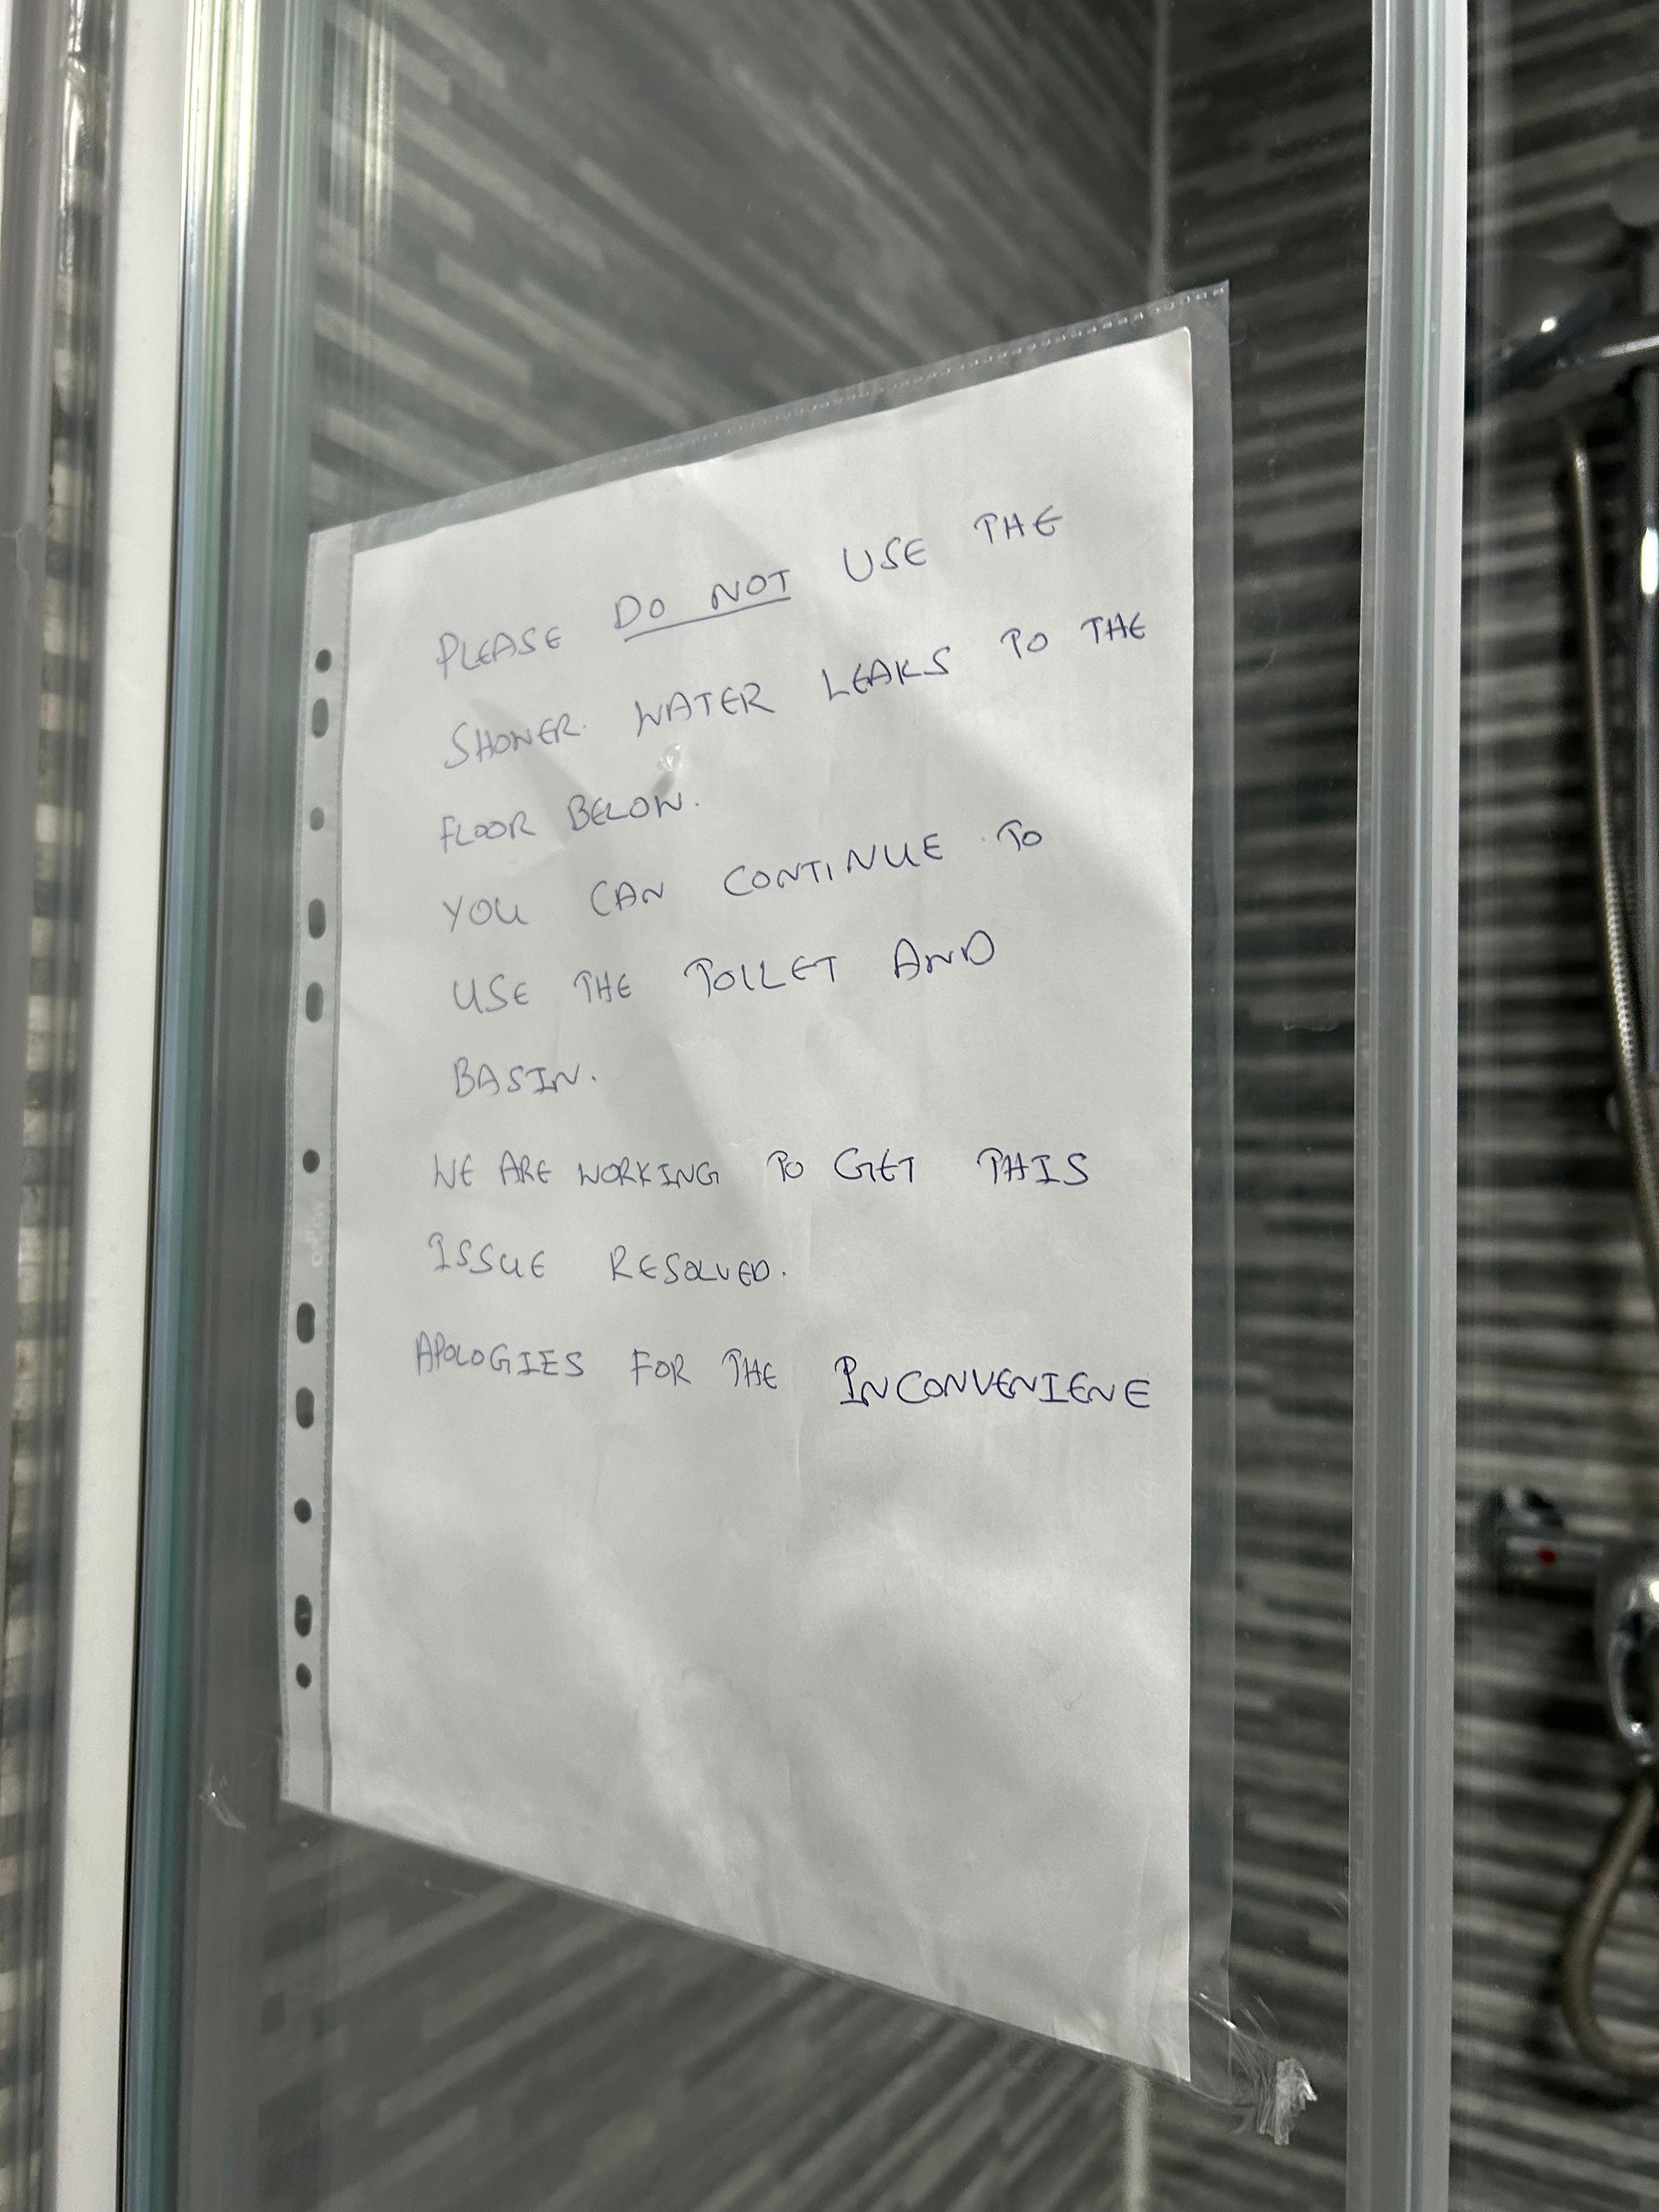 PLEASE DO NOT USE THE
SHOWER. WATER LEAKS TO THE
FLOOR BELOW.
YOU CAN CONTINUE TO
USE THE TOILET AND
BASIN.
WE ARE WORKING TO GET THIS
ISSUE RESOLVED.
APOLOGIES FOR THE INCONVENIENE